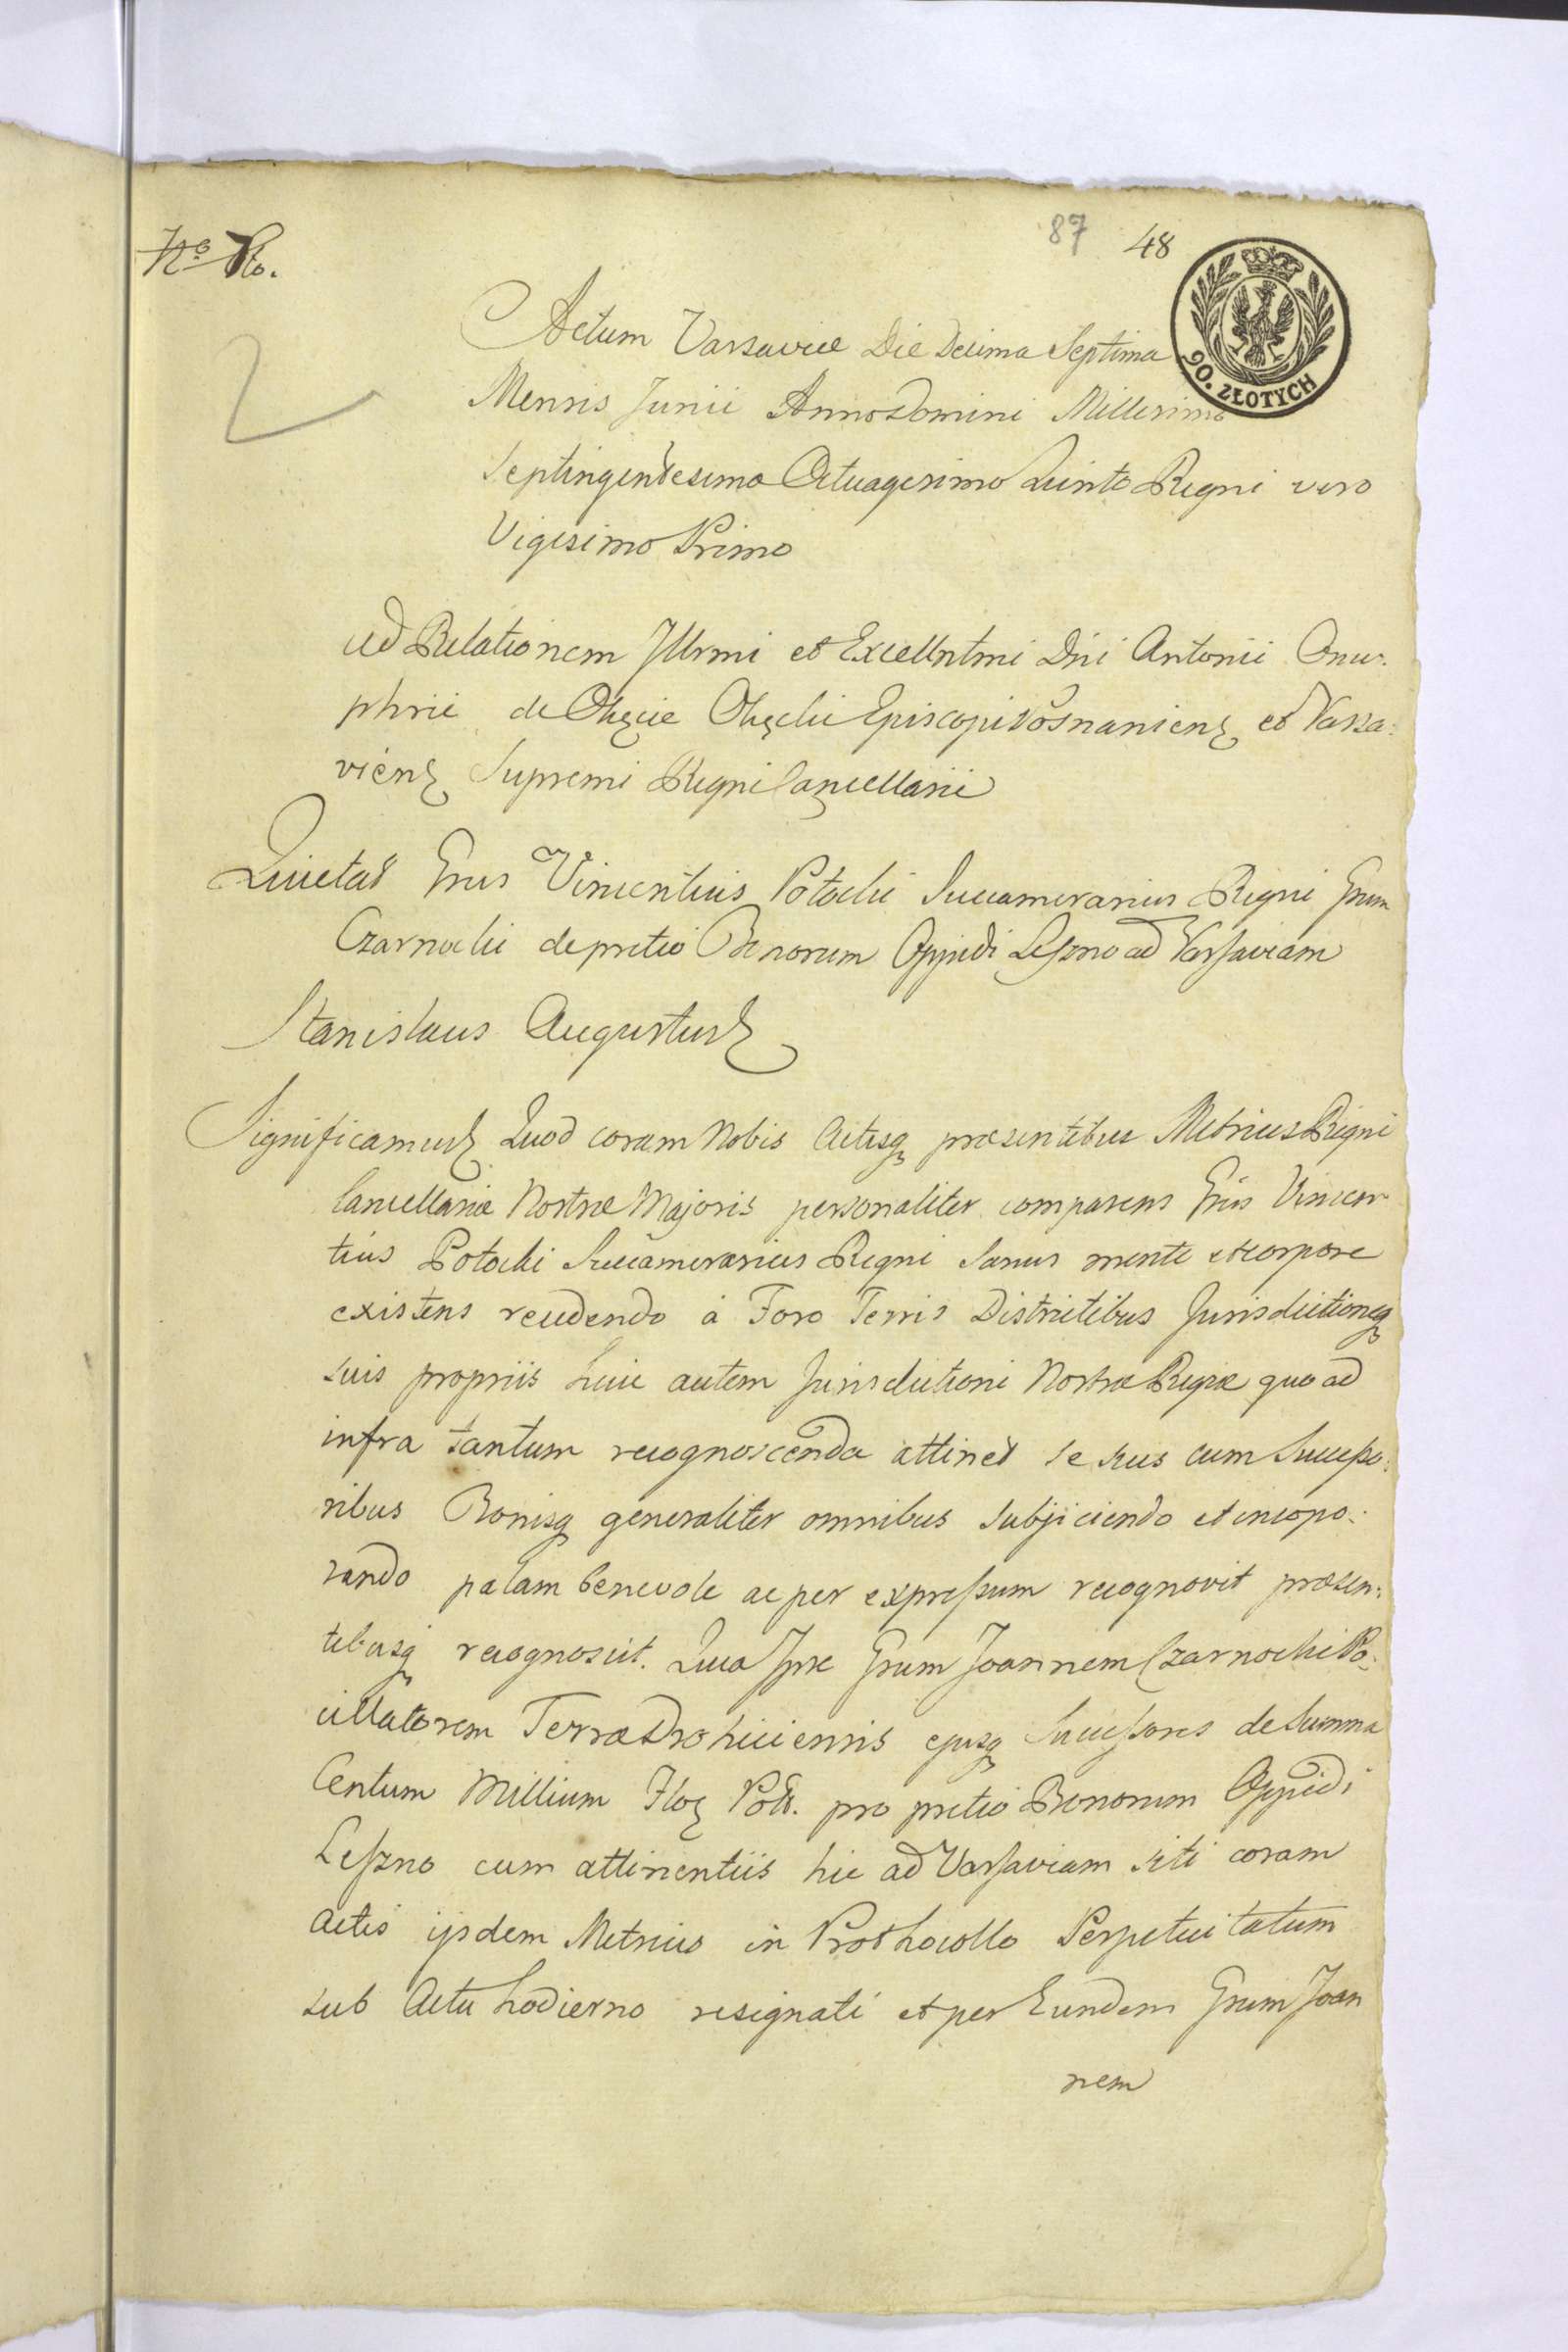 87 48
90. ZŁOTYCH
Actum Varsaviæ Die Decima Septima
Mensis Junii Anno Domini Millesimo
Septingentesimo Octuagesimo Quinto Regni vero
Vigesimo Primo
ad Relationem Jllrmi et Excellntmi Dni Antonii Onu-
phrii de Okęcie Okęcki Episcopi Posnaniens et Varsa:
viens Supremi Regni Cancellarii
Quietat Grus Vincentius Potocki Succamerarius Regni Grum
Czarnocki de pretio Bonorum Oppidi Leszno ad Varsaviam
Stanislaus Augustus
Significamus Quod coram Nobis Actisq præsentibus Metrices Regni
Cancellariæ Nostræ Majoris personaliter comparens Grus Vincen
tius Potocki Succamerarius Regni Sanus mente et corpore
existens recedendo a Foro Terris Districtibus Jurisdictioneq
suis propriis huic autem Jurisdictioni Nostræ Regiæ quo ad
infra tantum recognoscenda attinet se suis cum Successo:
ribus Bonisq generaliter omnibus subjiciendo et incopo:
rando palam benevole ac per expressum recognovit præsen:
tibusq recognoscit. Quia Jpse Grum Joannem Czarnocki Po:
cillatorem Terræ Drohiciensis ejusq Successores de Summa
Centum Millium Flo Poll. pro pretio Bonorum Oppidi
Leszno cum attinentiis hic ad Varsaviam siti coram
Actis ijsdem Metrices in Prothocollo Perpetuitatum
sub Actu hodierno resignati et per Eundem Grum Joan
nem